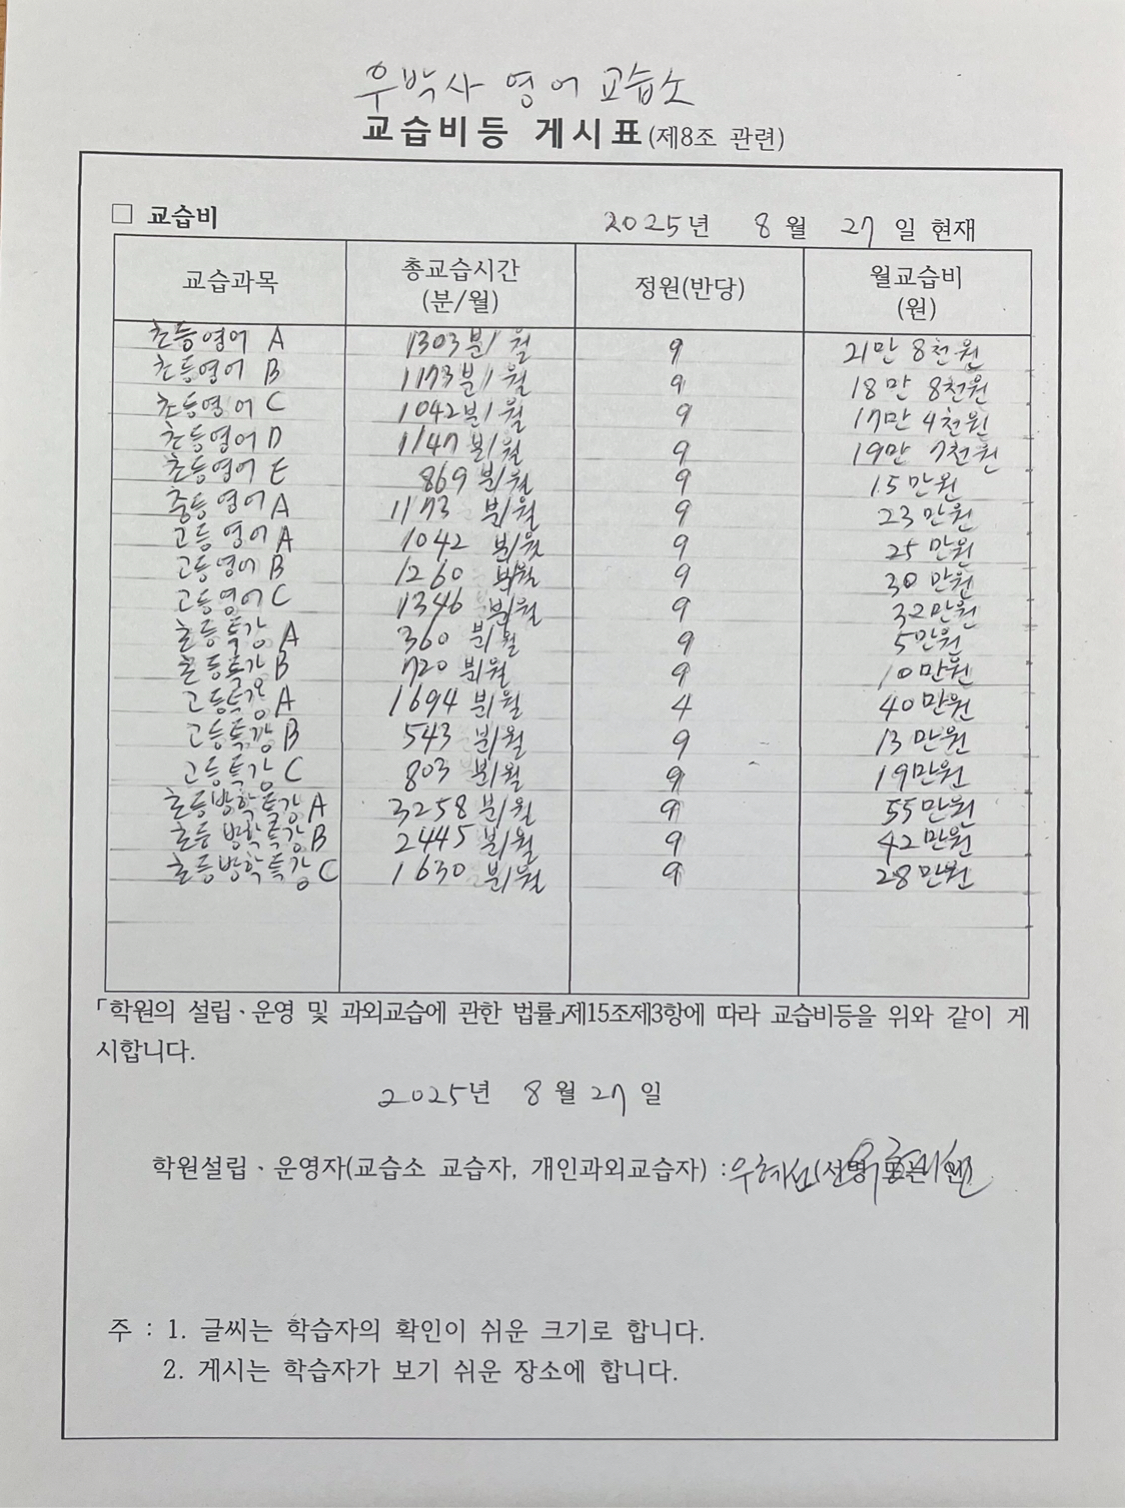 우박사 영어 교습소
교습비등 게시표(제8조 관련)
□ 교습비 2025년 8월 27일 현재
교습과목 총교습시간(분/월) 정원(반당) 월교습비(원)
초등영어 A 1303분/월 9 21만 8천원
초등영어 B 1173분/월 9 18만 8천원
초등영어 C 1042분/월 9 17만 4천원
초등영어 D 1147분/월 9 19만 7천원
초등영어 E 869분/월 9 15만원
중등영어 A 1173 분/월 9 23만원
고등영어 A 1042 분/월 9 25만원
고등영어 B 1260 분/월 9 30만원
고등영어 C 1346 분/월 9 32만원
초등특강 A 360 분/월 9 5만원
초등특강 B 720 분/월 9 10만원
고등특강 A 1694 분/월 4 40만원
고등특강 B 543 분/월 9 13만원
고등특강 C 803 분/월 9 19만원
초등방학특강 A 3258 분/월 9 55만원
초등방학특강 B 2445 분/월 9 42만원
초등방학특강 C 1630 분/월 9 28만원
「학원의 설립·운영 및 과외교습에 관한 법률」제15조제3항에 따라 교습비등을 위와 같이 게
시합니다.
2025년 8월 27일
학원설립·운영자(교습소 교습자, 개인과외교습자) : (서명 또는 인)
주 : 1. 글씨는 학습자의 확인이 쉬운 크기로 합니다.
2. 게시는 학습자가 보기 쉬운 장소에 합니다.